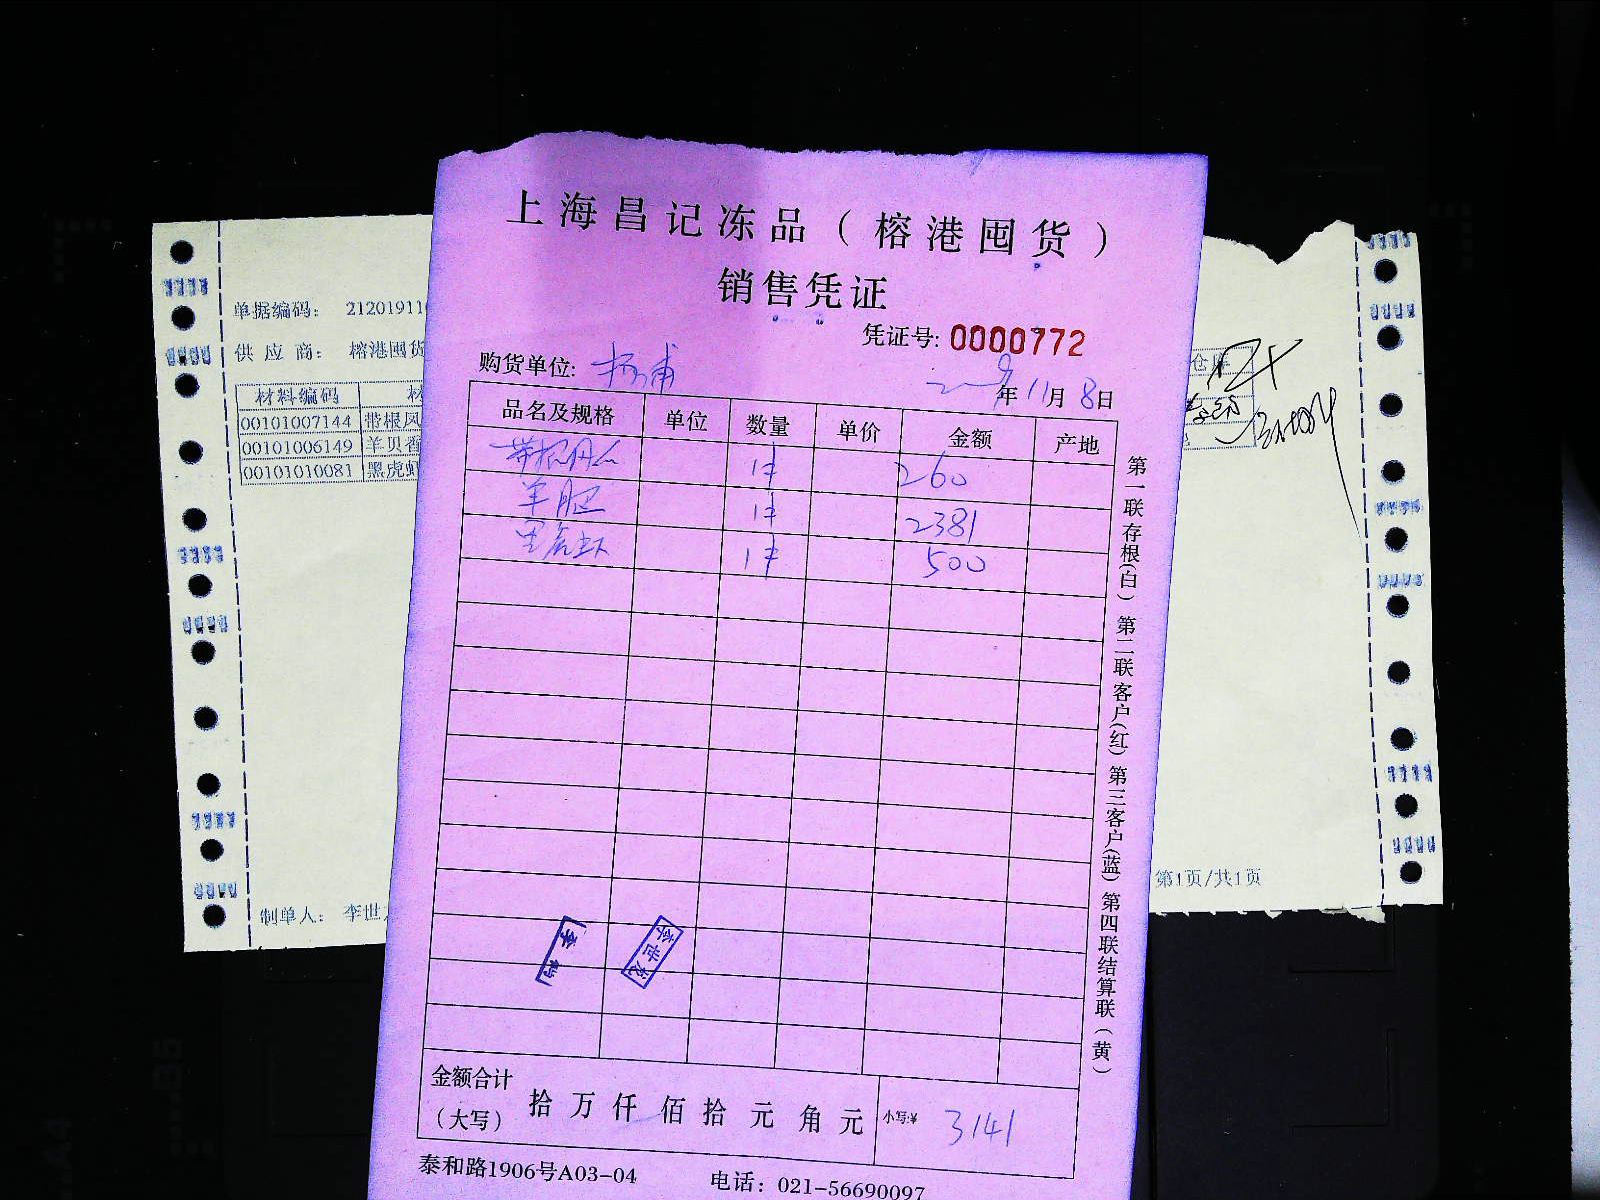 上海昌记冻品（榕港囤货）
销售凭证
凭证号: 0000772
购货单位: 杨浦
2019年11月8日
品名及规格 单位 数量 单价 金额 产地
1件 260
羊肚 1件 2381
黑虎虾 1件 500
金额合计（大写） 拾 万 仟 佰 拾 元 角 元 小写:¥ 3141
泰和路1906号A03-04 电话：021-56690097
第一联存根(白) 第二联客户(红) 第三客户(蓝) 第四联结算联(黄)
李世龙
单据编码： 21201911
供应商： 榕港囤货
材料编码 材
00101007144 带根风
00101006149 羊贝香
00101010081 黑虎虾
仓库
制单人： 李世
第1页/共1页